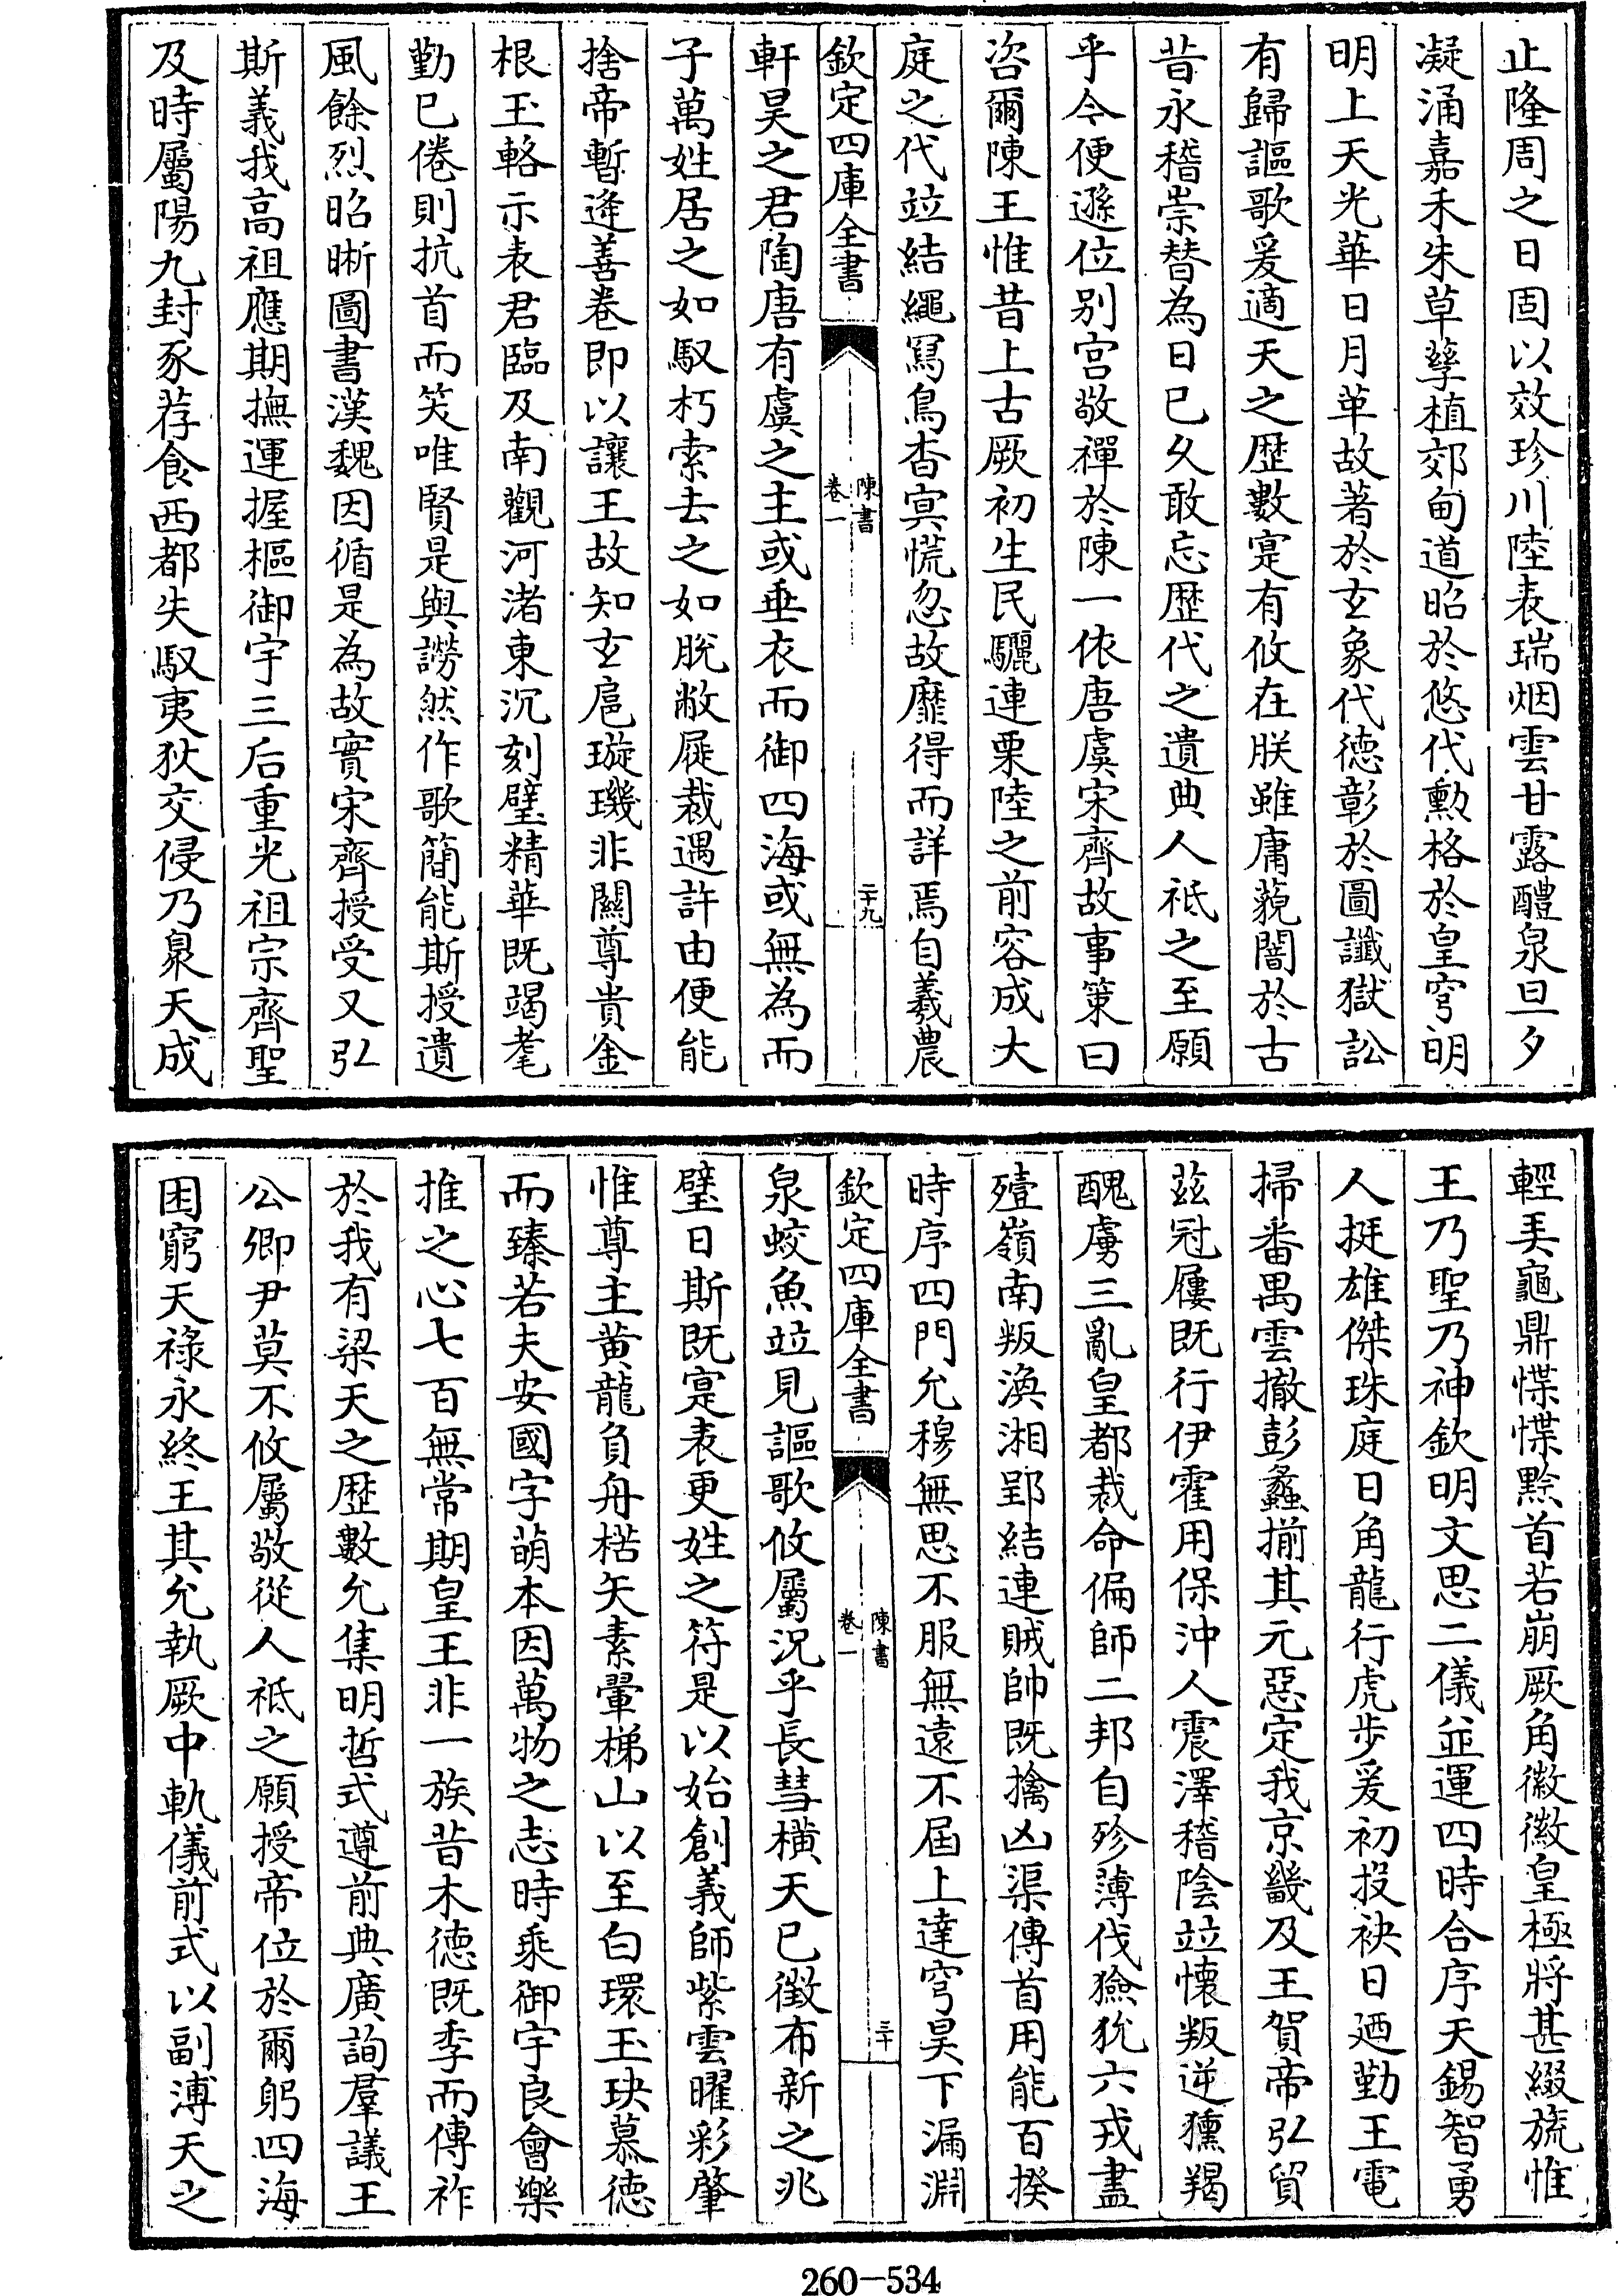 止隆周之日固以效珍川陸表瑞烟雲甘露醴泉旦夕
凝涌嘉禾朱草孳植郊甸道昭於悠代勲格於皇穹明
明上天光華日月革故著於玄象代徳彰於圖讖獄訟
有歸謳歌爰適天之歴數寔有攸在朕雖庸藐闇於古
昔永稽崇替為日已久敢忘歴代之遺典人祗之至願
乎今便遜位别宫敬禪於陳一依唐虞宋齊故事策曰
咨爾陳王惟昔上古厥初生民驪連栗陸之前容成大
庭之代竝結繩冩鳥杳㝠慌忽故靡得而詳焉自羲農
欽定四庫全書
陳書
卷一
二十九
軒昊之君陶唐有虞之主或垂衣而御四海或無為而
子萬姓居之如馭朽索去之如脫敝屣裁遇許由便能
捨帝暫逢善卷即以讓王故知玄扈璇璣非關尊貴金
根玉輅示表君臨及南觀河渚東沉刻璧精華既竭耄
勤已倦則抗首而笑唯賢是與謗然作歌簡能斯授遺
風餘烈昭晰圖書漢魏因循是為故實宋齊授受又弘
斯義我髙祖應期撫運握樞御宇三后重光祖宗齊聖
及時屬陽九封豕荐食西都失馭夷狄交侵乃㬌天成
輕弄龜鼎惵惵黔首若崩厥角徽徽皇極將甚綴旒惟
王乃聖乃神欽明文思二儀並運四時合序天錫智勇
人挺雄傑珠庭日角龍行虎步爰初投袂日廼勤王電
掃番禺雲撤彭蠡揃其元惡定我京畿及王賀帝弘貿
茲冠屨既行伊霍用保沖人震澤稽陰竝懷叛逆獯羯
醜虜三亂皇都裁命偏師二邦自殄薄伐獫狁六戎盡
殪嶺南叛渙湘郢結連賊帥既擒凶渠傳首用能百揆
時序四門允穆無思不服無遠不屆上達穹昊下漏淵
欽定四庫全書
陳書
卷一
三十
泉蛟魚竝見謳歌攸屬況乎長彗横天已徴布新之兆
璧日斯既寔表更姓之符是以始創義師紫雲曜彩肇
惟尊主黄龍負舟楛矢素翬梯山以至白環玉玦慕徳
而臻若夫安國字萌本因萬物之志時乘御宇良會樂
推之心七百無常期皇王非一族昔木徳既季而傳祚
於我有梁天之歴數允集明哲式遵前典廣詢羣議王
公卿尹莫不攸屬敬從人祗之願授帝位於爾躬四海
困窮天祿永終王其允執厥中軌儀前式以副溥天之
260-534